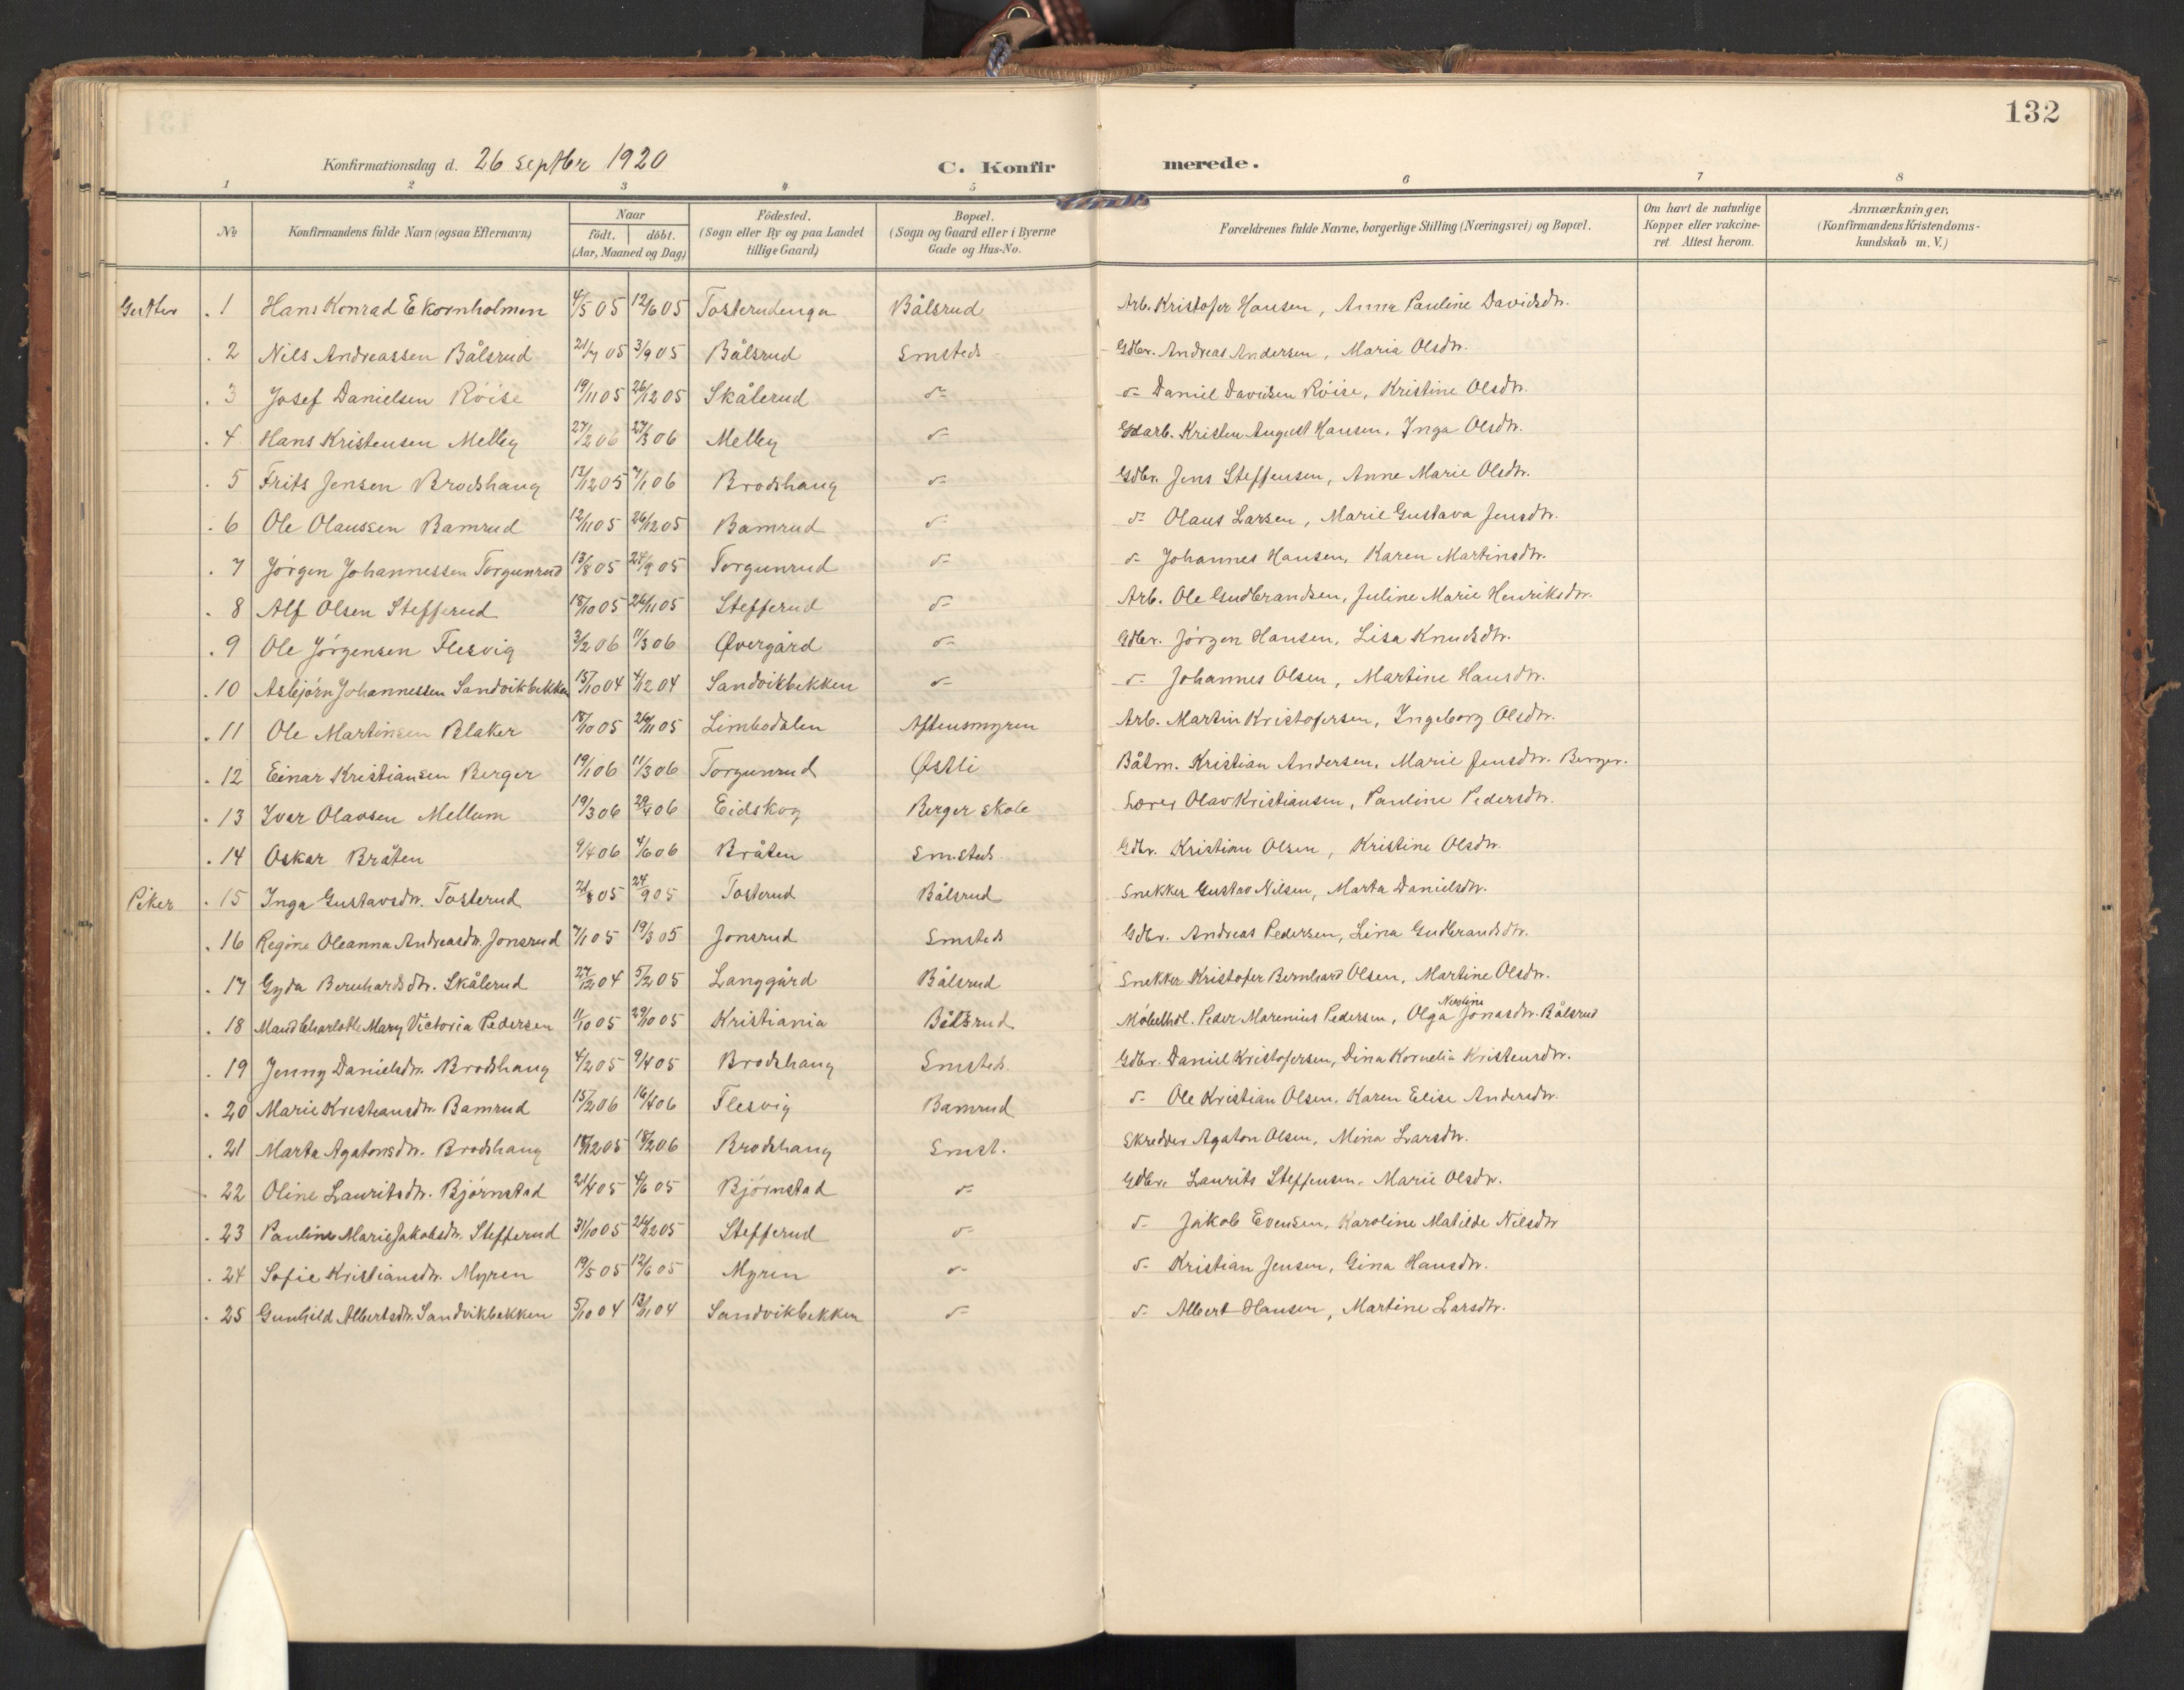 132
Konfirmationsdag d. 26 septbr 1920 C. Konfirmerede.
1 2 3 4 5 6 7 8
No Konfirmandens fulde Navn (ogsaa Efternavn) Naar født. døbt. (Aar, Maaned og Dag) Fødested. (Sogn eller By og paa Landet tillige Gaard) Bopæl. (Sogn og Gaard eller i Byerne Gade og Hus-No. Forældrenes fulde Navne, borgerlige Stilling (Næringsvei) og Bopæl. Om havt de naturlige Kopper eller vakcineret Attest herom. Anmærkninger. (Konfirmandens Kristendomskundskab m.V.)
Gutter 1 Hans Konrad Ekornholmen 4/5 05 12/6 05 Tosterudenga Bålsrud Arb. Kristofer Hansen, Anna Pauline Davidsdtr.
2 Nils Andreassen Bålsrud 21/7 05 3/9 05 Bålsrud Smsteds Gdbr. Andreas Andersen, Maria Olsdtr.
3 Josef Danielsen Røise 19/11 05 26/12 05 Skålerud d- d- Daniel Davidsen Røise, Kristine Olsdtr.
4 Hans Kristensen Melby 27/2 06 27/3 06 Melby d- Gdarb. Kristen August Hansen, Inga Olsdtr.
5 Frits Jensen Brodshaug 13/12 05 7/1 06 Brodshaug d- Gdbr. Jens Steffensen, Anne Marie Olsdtr.
6 Ole Olaussen Bamrud 12/11 05 26/12 05 Bamrud d- d- Olaus Larsen, Marie Gustava Jensdtr.
7 Jørgen Johannessen Torgunrud 13/8 05 24/9 05 Torgunrud d- d- Johannes Hansen, Karen Martinsdtr.
8 Alf Olsen Stefferud 18/10 05 26/11 05 Stefferud d- Arb. Ole Gudbrandsen, Juline Marie Henriksdtr.
9 Ole Jørgensen Flesvig 3/2 06 11/3 06 Øvergård d- Gdbr. Jørgen Hansen, Lisa Knudsdtr.
10 Asbjørn Johannessen Sandvikbekken 15/10 04 4/12 04 Sandvikbekken d- d- Johannes Olsen, Martine Hansdtr.
11 Ole Martinsen Blaker 18/10 05 26/11 05 Limbodalen Aftensmyren Arb. Martin Kristofersen, Ingeborg Olsdtr.
12 Einar Kristiansen Berger 19/1 06 11/3 06 Torgunrud Østli Båtm. Kristian Andersen, Marie Jensdtr. Berger.
13 Ivar Olavsen Mellum 19/3 06 29/4 06 Eidskog Berger skole Lærer Olav Kristiansen, Pauline Pedersdtr.
14 Oskar Bråten 9/4 06 4/6 06 Bråten Smsteds. Gdbr. Kristian Olsen, Kristine Olsdtr.
Piker 15 Inga Gustavsdtr. Tosterud 21/8 05 24/9 05 Tosterud Bålsrud Snekker Gustav Nilsen, Marta Danielsdtr.
16 Regine Oleanna Andreasdtr. Jonsrud 7/1 05 19/3 05 Jonsrud Smsteds Gdbr. Andreas Pedersen, Lina Gudbrandsdtr.
17 Gyda Bernhardsdtr. Skålerud 27/12 04 5/2 05 Langgård Bålsrud Snekker Kristofer Bernhard Olsen, Martine Olsdtr.
18 Maud Charlotte Mary Victoria Pedersen 11/10 05 29/10 05 Kristiania Bålsrud Møbelhdl. Peder Marenius Pedersen, Olga Jonasdtr. Bålsrud
19 Jenny Danielsdtr. Brodshaug 4/2 05 9/4 05 Brodshaug Smsteds. Gdbr. Daniel Kristofersen, Dina Kornelia Kristensdtr.
20 Marie Kristiansdtr. Bamrud 15/2 06 16/4 06 Flesvig Bamrud d- Ole Kristian Olsen, Karen Elise Andersdtr.
21 Marta Agatonsdtr. Brodshaug 18/12 05 18/2 06 Brodshaug Smst. Skredder Agaton Olsen, Mina Larsdtr.
22 Oline Lauritsdtr. Bjørnstad 21/4 05 4/6 05 Bjørnstad d- Gdbr. Laurits Steffensen, Marie Olsdtr.
23 Pauline Marie Jakobsdtr. Stefferud 31/10 05 26/12 05 Stefferud d- d- Jakob Evensen, Karoline Matilde Nilsdtr
24 Sofie Kristiansdtr. Myren 19/5 05 12/6 05 Myren d- d- Kristian Jensen, Gina Hansdtr.
25 Gunhild Albertsdtr. Sandvikbekken 5/10 04 13/11 04 Sandvikbekken d- d- Albert Hansen, Martine Larsdtr.